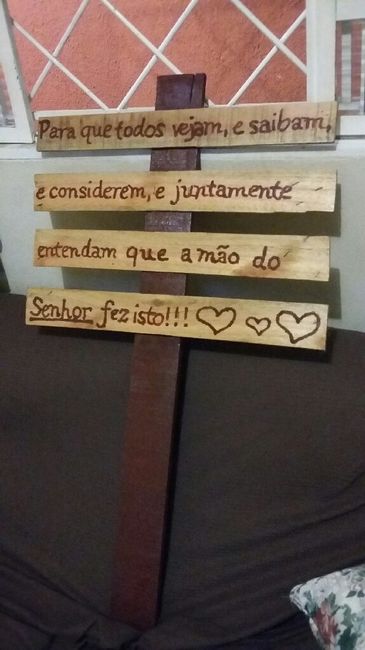 Para que todos vejam, e saibam,
e considerem, e juntamente
entendam que a mão do
Senhor fez isto!!!